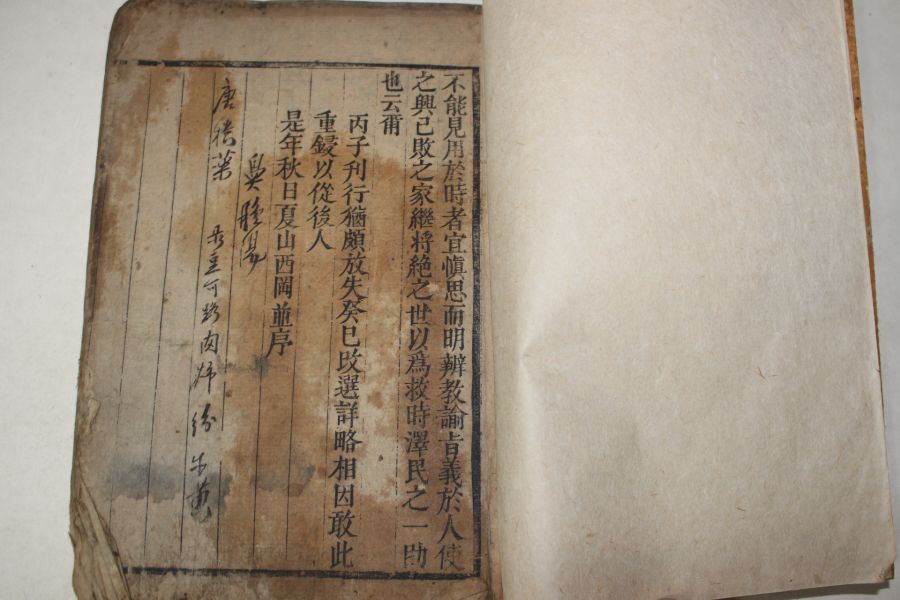 不能見用於時者宜愼思而明辨教諭旨義於人使
之興已敗之家繼將絶之世以爲救時澤民之一助
也云爾
丙子刊行猶頗放失癸巳攺選詳略相因敢此
重鋟以從後人
是年秋日夏山西岡並序
唐